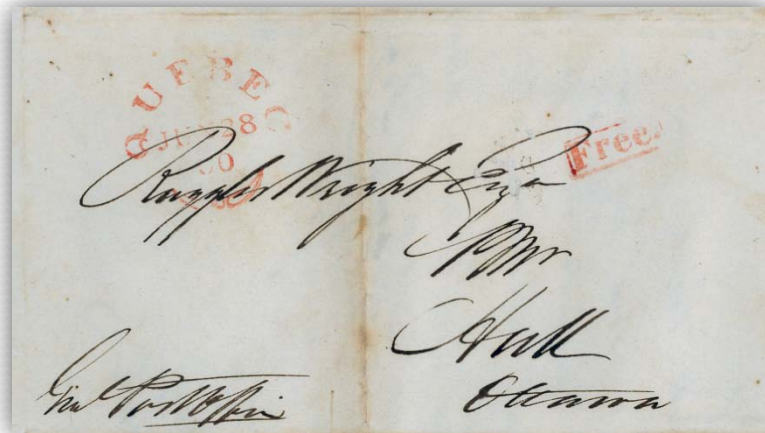 QUEBEC
28
Free.
Ruggles Wright Esqr
PMr
Hull
Ottawa
Genl Post Office